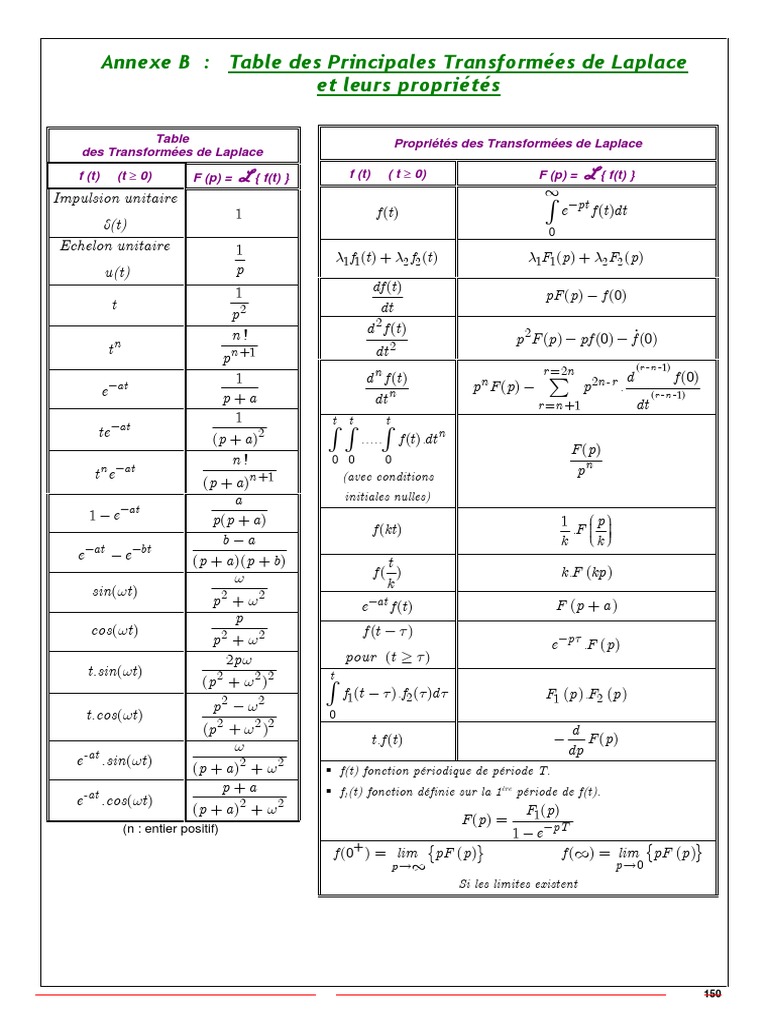 Annexe B : Table des Principales Transformées de Laplace
et leurs propriétés
Table
des Transformées de Laplace
f (t) (t ≥ 0) F (p) = ℒ { f(t) }
Impulsion unitaire
δ(t)
1
Echelon unitaire
u(t)
1/p
t 1/p²
tⁿ n !/pⁿ⁺¹
e^{–at} 1/(p + a)
te^{–at} 1/(p + a)²
tⁿe^{–at} n !/(p + a)ⁿ⁺¹
1 – e^{–at} a/p(p + a)
e^{–at} – e^{–bt} (b – a)/(p + a)(p + b)
sin(ωt) ω/(p² + ω²)
cos(ωt) p/(p² + ω²)
t.sin(ωt) 2pω/(p² + ω²)²
t.cos(ωt) (p² – ω²)/(p² + ω²)²
e^{-at}.sin(ωt) ω/((p + a)² + ω²)
e^{-at}.cos(ωt) (p + a)/((p + a)² + ω²)
(n : entier positif)
Propriétés des Transformées de Laplace
f (t) ( t ≥ 0) F (p) = ℒ { f(t) }
f(t) ∫₀^∞ e^{–pt} f(t)dt
λ₁f₁(t) + λ₂f₂(t) λ₁F₁(p) + λ₂F₂(p)
df(t)/dt pF(p) – f(0)
d²f(t)/dt² p²F(p) – pf(0) – ḟ(0)
dⁿf(t)/dtⁿ pⁿF(p) – ∑_{r=n+1}^{r=2n} p^{2n-r} . d^{(r-n-1)}f(0)/dt^{(r-n-1)}
∫₀^t ∫₀^t ..... ∫₀^t f(t).dtⁿ
(avec conditions
initiales nulles)
F(p)/pⁿ
f(kt) 1/k .F(p/k)
f(t/k) k.F (kp)
e^{–at}f(t) F (p + a)
f(t – τ)
pour (t ≥ τ)
e^{–pτ}.F (p)
∫₀^t f₁(t – τ).f₂(τ)dτ F₁ (p).F₂ (p)
t.f(t) – d/dp F(p)
▪ f(t) fonction périodique de période T.
▪ f₁(t) fonction définie sur la 1ère période de f(t).
F(p) = F₁(p)/(1 – e^{–pT})
f(0⁺) = lim_{p→∞} {pF (p)} f(∞) = lim_{p→0} {pF (p)}
Si les limites existent
150